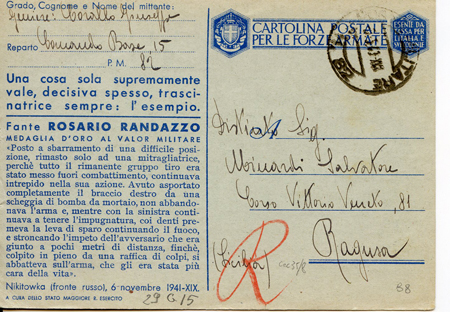 Grado, Cognome e Nome del mittente:
Reparto Comando Base 15
P. M. 82
Una cosa sola supremamente
vale, decisiva spesso, trasci-
natrice sempre: l'esempio.
Fante ROSARIO RANDAZZO
MEDAGLIA D'ORO AL VALOR MILITARE
«Posto a sbarramento di una difficile posi-
zione, rimasto solo ad una mitragliatrice,
perchè tutto il rimanente gruppo tiro era
stato messo fuori combattimento, continuava
intrepido nella sua azione. Avuto asportato
completamente il braccio destro da una
scheggia di bomba da mortaio, non abbando-
nava l'arma e, mentre con la sinistra conti-
nuava a tenere l'impugnatura, coi denti pre-
meva la leva di sparo continuando il fuoco,
e stroncando l'impeto dell'avversario che era
giunto a pochi metri di distanza, finchè,
colpito in pieno da una raffica di colpi, si
abbatteva sull'arma, che gli era stata più
cara della vita».
Nikitowka (fronte russo), 6 novembre 1941-XIX.
A CURA DELLO STATO MAGGIORE R. ESERCITO
29 G 15
CARTOLINA POSTALE
PER LE FORZE ARMATE
ESENTE DA
TASSA PER
L'ITALIA E
COLONIE
Distinto Sig.
Salvatore
Corso Vittorio Veneto, 81
Ragusa
(Sicilia)
R
B8